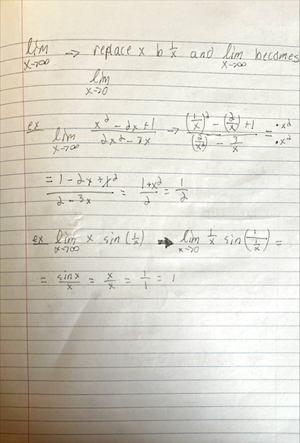 lim x→∞ → replace x b 1/x and lim x→∞ becomes
lim x→0
ex lim x→∞ x² - 2x + 1 / 2x² - 3x → (1/x)² - (2/x) + 1 / (2/x²) - 3/x = · x² / · x²
= 1 - 2x + x² / 2 - 3x = 1 + x² / 2 = 1/2
ex lim x→∞ x sin(1/x) → lim x→0 1/x sin(1/(1/x)) =
= sinx/x = x/x = 1/1 = 1